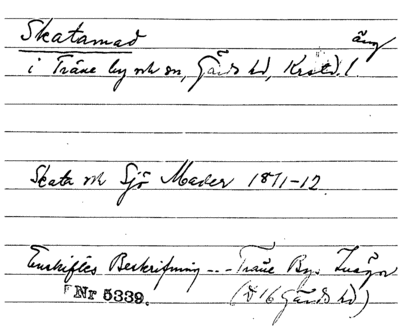 Skatamad äng
i Träne by och sn, Gärds hd, Krstd. l.
Skata och Sjö Mader 1811-12
Enskiftes Beskrifning --- Träne By. Inägor
Nr 5339. (N 16 Gärds hd)